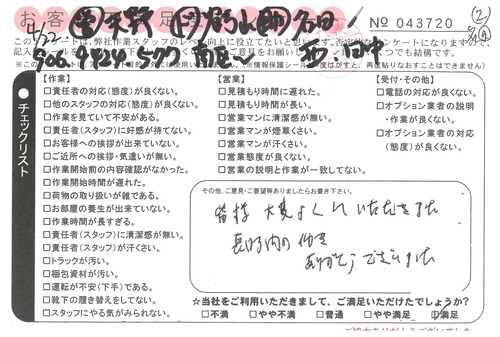 お客
No 043720
このアンケートは、弊社作業スタッフのレベル向上に役立てたいと思います。
【作業】
□責任者の対応(態度)が良くない。
□他のスタッフの対応(態度)が良くない。
□作業を見ていて不安がある。
□責任者(スタッフ)に好感が持てない。
□お客様への挨拶が出来ていない。
□ご近所への挨拶・気遣いが無い。
□作業開始前の内容確認がなかった。
□作業開始時間が遅れた。
□荷物の取り扱いが雑である。
□お部屋の養生が出来ていない。
□作業時間が長すぎる。
□責任者(スタッフ)に清潔感が無い。
□責任者(スタッフ)が汗くさい。
□トラックが汚い。
□梱包資材が汚い。
□運転が不安(下手)である。
□靴下の履き替えをしてない。
□スタッフにやる気がみられない。
【営業】
□見積もり時間に遅れた。
□見積もり時間が長い。
□営業マンに清潔感が無い。
□営業マンが煙草くさい。
□営業マンが汗くさい。
□営業態度が良くない。
□営業の説明と作業が一致してない。
【受付・その他】
□電話の対応が良くない。
□オプション業者の説明
・作業が良くない。
□オプション業者の対応
(態度)が良くない。
チェックリスト
その他、ご意見・ご要望等ありましたらお書き下さい。
皆様 大変よくして いただきました
長時間の作業
ありがとうございました
☆当社をご利用いただきまして、ご満足いただけたでしょうか?
□不満 □やや不満 □普通 □やや満足 □満足